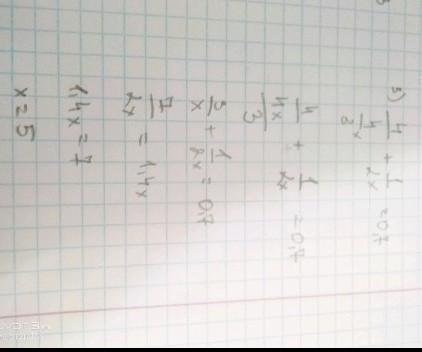 3) 4/(4/3 x) + 1/2x = 0,7
4/(4x/3) + 1/2x = 0,7
3/x + 1/2x = 0,7
7/2x = 1,4x
1,4x = 7
x = 5